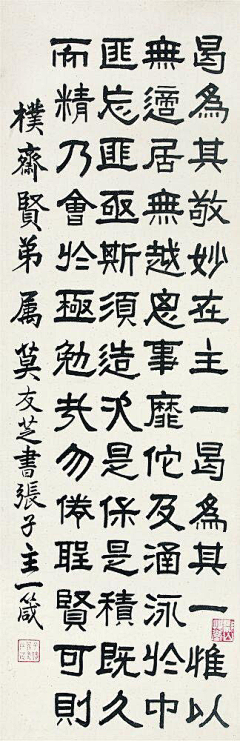 曷為其敬妙在主一曷為其一惟以
無適居無越思事靡佗及涵泳於中
匪忘匪亟斯須造次是保是積既久
而精乃會於極勉哉勿倦聖賢可則
樸齋賢弟属莫友芝書張子主一箴